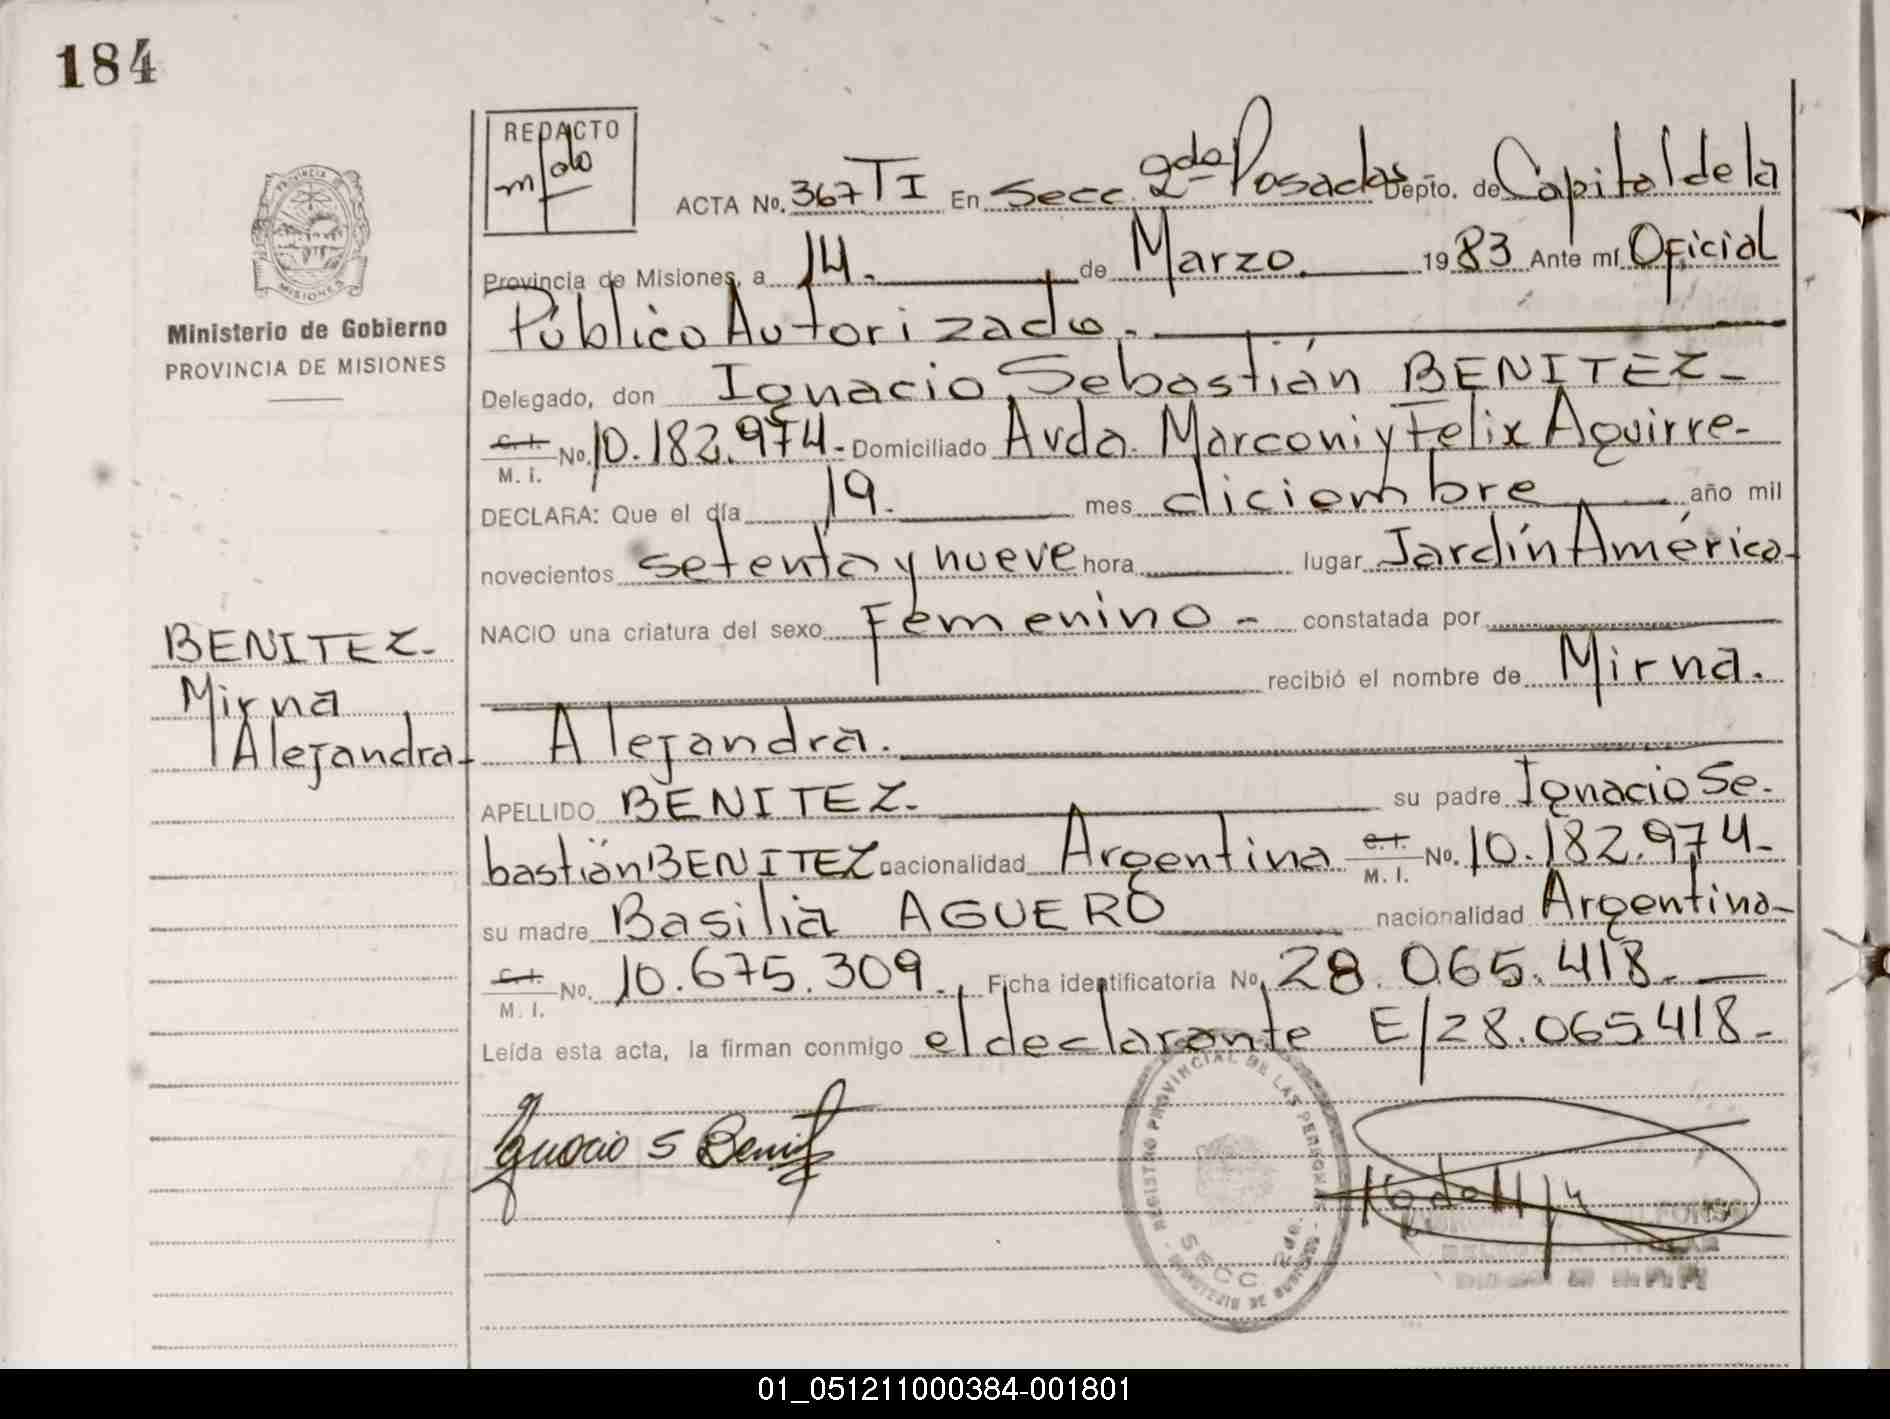 184
REDACTO
PROVINCIA
MISIONES
Ministerio de Gobierno
PROVINCIA DE MISIONES
ACTA No. 367 TI En Secc. 2da Posadas Depto. de Capital de la
Provincia de Misiones, a 14. de Marzo. 1983 Ante mí Oficial
Público Autorizado.
Delegado, don Ignacio Sebastián BENITEZ-
C.I. M. I. No. 10.182.974.- Domiciliado Avda. Marconi y Felix Aguirre-
DECLARA: Que el día 19. mes diciembre año mil
novecientos setenta y nueve hora lugar Jardín América-
NACIO una criatura del sexo Femenino - constatada por
recibió el nombre de Mirna.
Alejandra.
BENITEZ-
Mirna
Alejandra-
APELLIDO BENITEZ. su padre Ignacio Se-
bastián BENITEZ nacionalidad Argentina C.I. M. I. No. 10.182.974-
su madre Basilia AGUERO nacionalidad Argentina-
C.I. M. I. No. 10.675.309. Ficha identificatoria No. 28.065.418.-
Leída esta acta, la firman conmigo el declarante E/28.065418-
Ignacio S Benit
REGISTRO PROVINCIAL DE LAS PERSONAS
SECC. 2da.
01_051211000384-001801